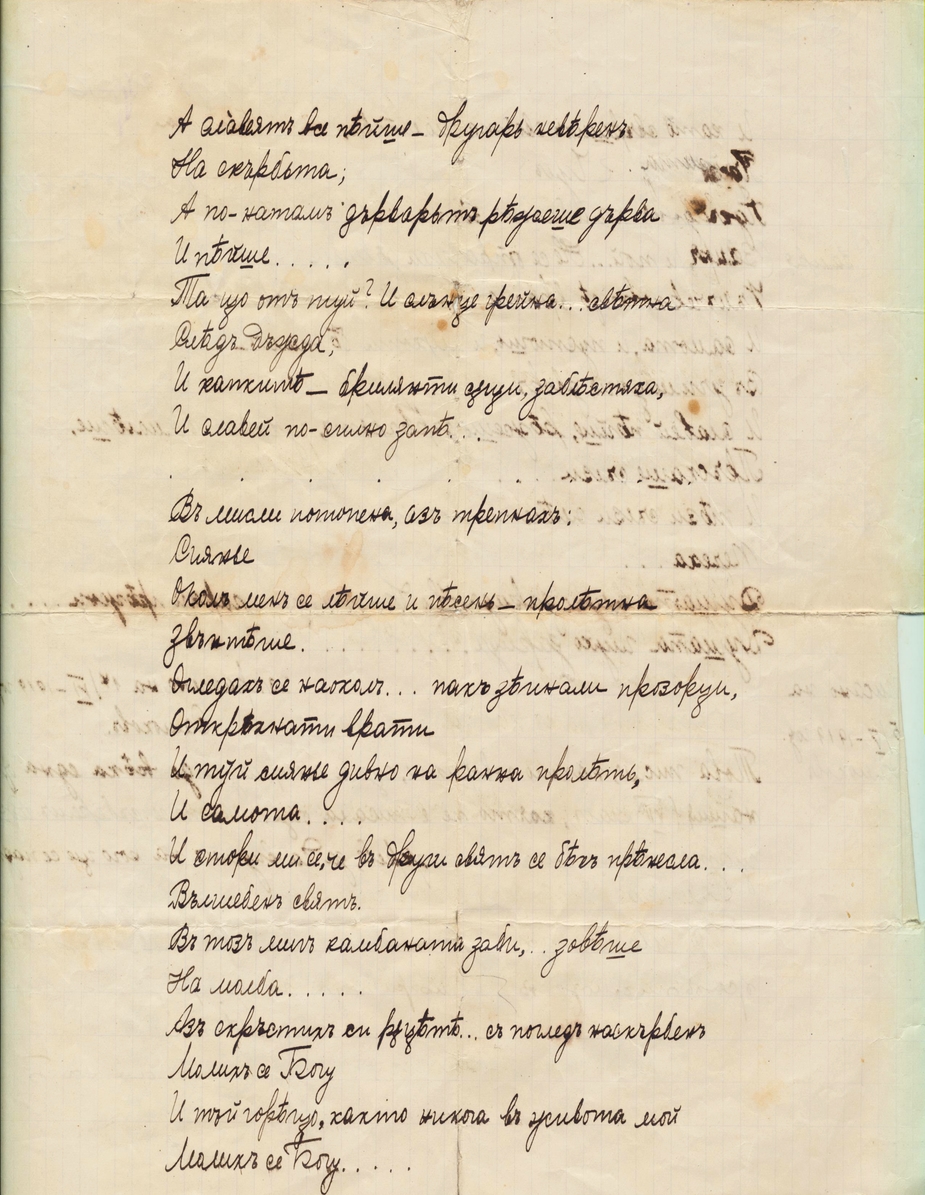 А славеятъ все пѣйше – другарь невѣренъ
На скърбьта;
А по-натамъ дърварьтъ рѣжеше дърва
И пѣйше.....
Та що отъ туй? И слънце грейна... свѣтна
Слѣдъ дъжда,
И капкитѣ – брилянти сѫщи, заблѣстяха,
И славей по-силно запѣ...
. . . . . . . .
Въ мисли потопена, азъ трепнахъ:
Сиянье
Околъ менъ се лѣйше и пѣсень – пролѣтна
Звънтѣше.
Огледахъ се наоколъ... пакъ зѣинали прозорци,
Открѣхнати врати
И туй сиянье дивно на ранна пролѣть,
И самота....
И стори ми се, че въ други святъ се бѣхъ прѣнесла...
Вълшебенъ святъ.
Въ тозъ мигъ камбаната заби,.. зовѣше
На молба.....
Азъ скръстихъ си рѫцѣтѣ... съ погледъ наскърбенъ
Молихъ се Богу
И тъй горѣщо, както никога въ живота мой
Молихъ се Богу.....